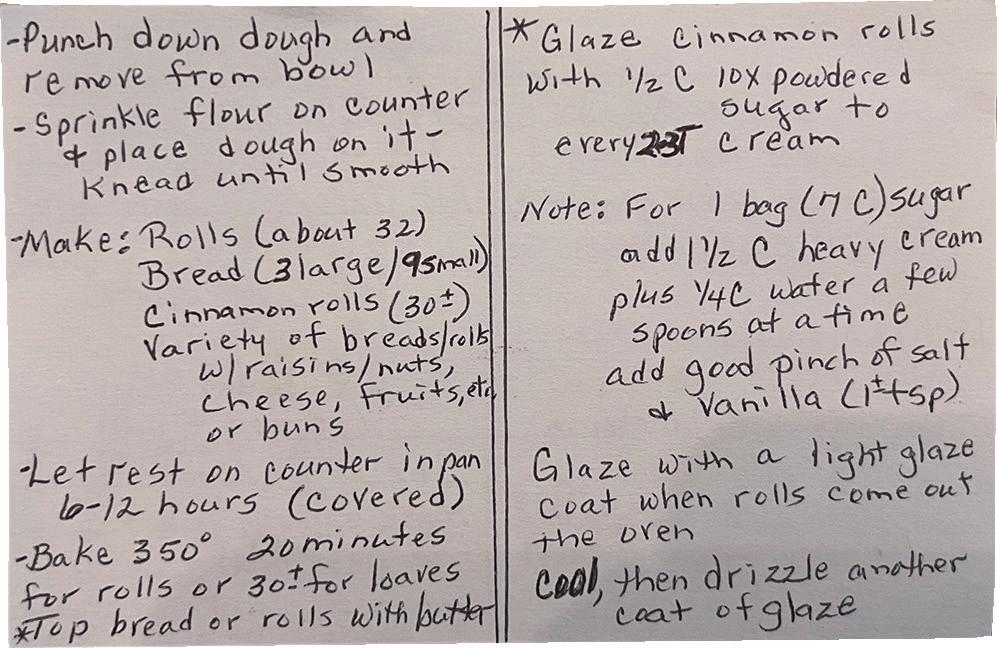 -Punch down dough and
remove from bowl
-Sprinkle flour on counter
& place dough on it-
Knead until smooth
-Make: Rolls (about 32)
Bread (3 large/9 small)
Cinnamon rolls (30±)
Variety of breads/rolls
w/raisins/nuts,
cheese, fruits, etc
or buns
-Let rest on counter in pan
6-12 hours (covered)
-Bake 350° 20 minutes
for rolls or 30± for loaves
*Top bread or rolls with butter
*Glaze cinnamon rolls
with 1/2 C 10x powdered
sugar to
every 2-3T cream
Note: For 1 bag (7 C) sugar
add 1 1/2 C heavy cream
plus 1/4 C water a few
spoons at a time
add good pinch of salt
& vanilla (1± tsp)
Glaze with a light glaze
coat when rolls come out
the oven
cool, then drizzle another
coat of glaze